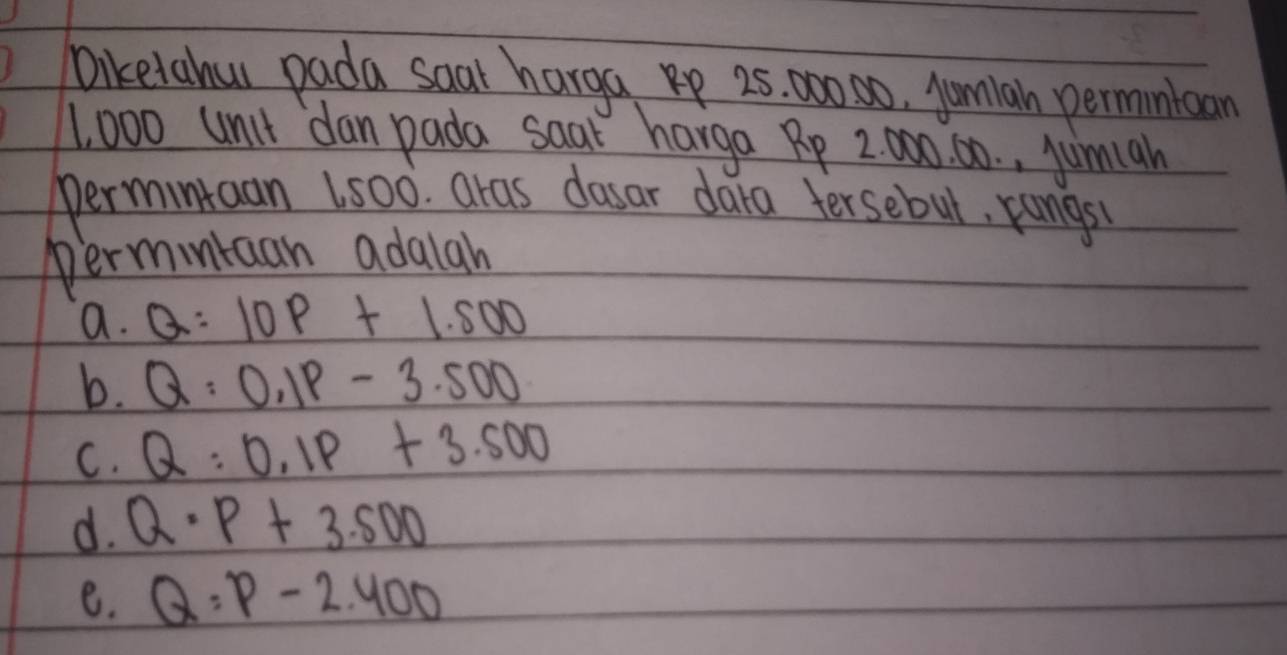 Diketahui pada saat harga Rp 25.000.00, Jumlah permintaan
1.000 unit dan pada saat harga Rp 2.000.00., Jumlah
permintaan 1.500. atas dasar data tersebut, fungsi
permintaan adalah
a. Q = 10P + 1.500
b. Q = 0,1P - 3.500
c. Q = 0,1P + 3.500
d. Q = P + 3.500
e. Q = P - 2.400